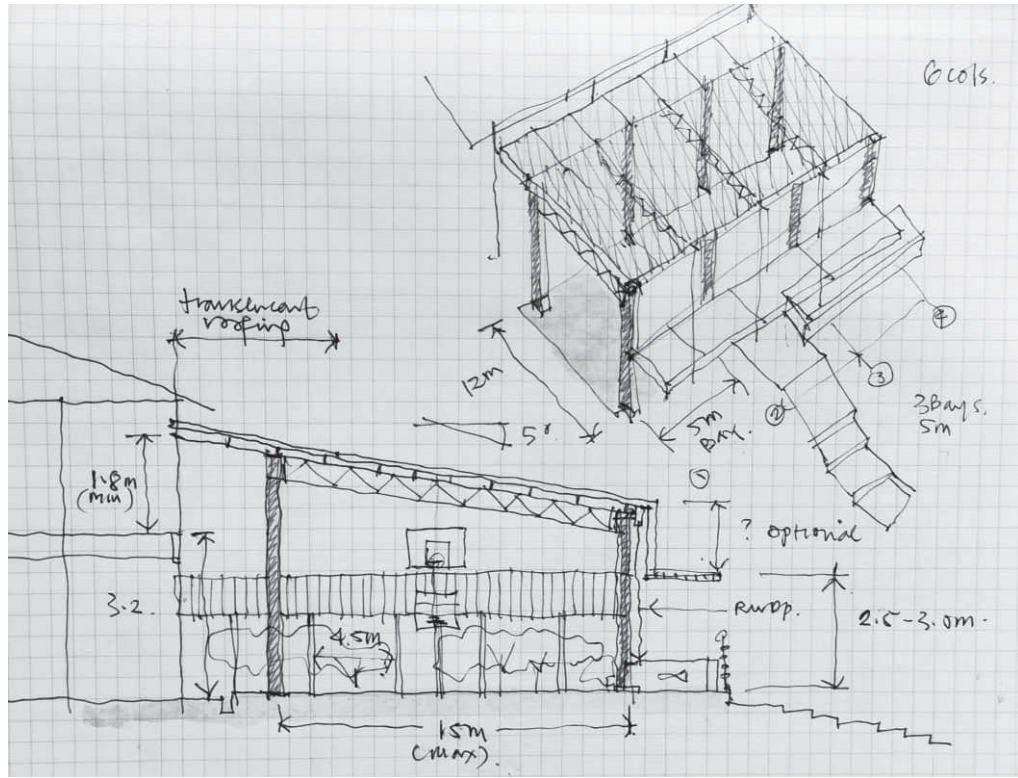 6 cols.
translucent
roofing
12m
5m
Bay.
①
②
③
④
3 Bays.
5m
5°
1.8m
(min)
? optional
3.2.
4.5m
RWDP.
2.5-3.0m.
15m
(max).